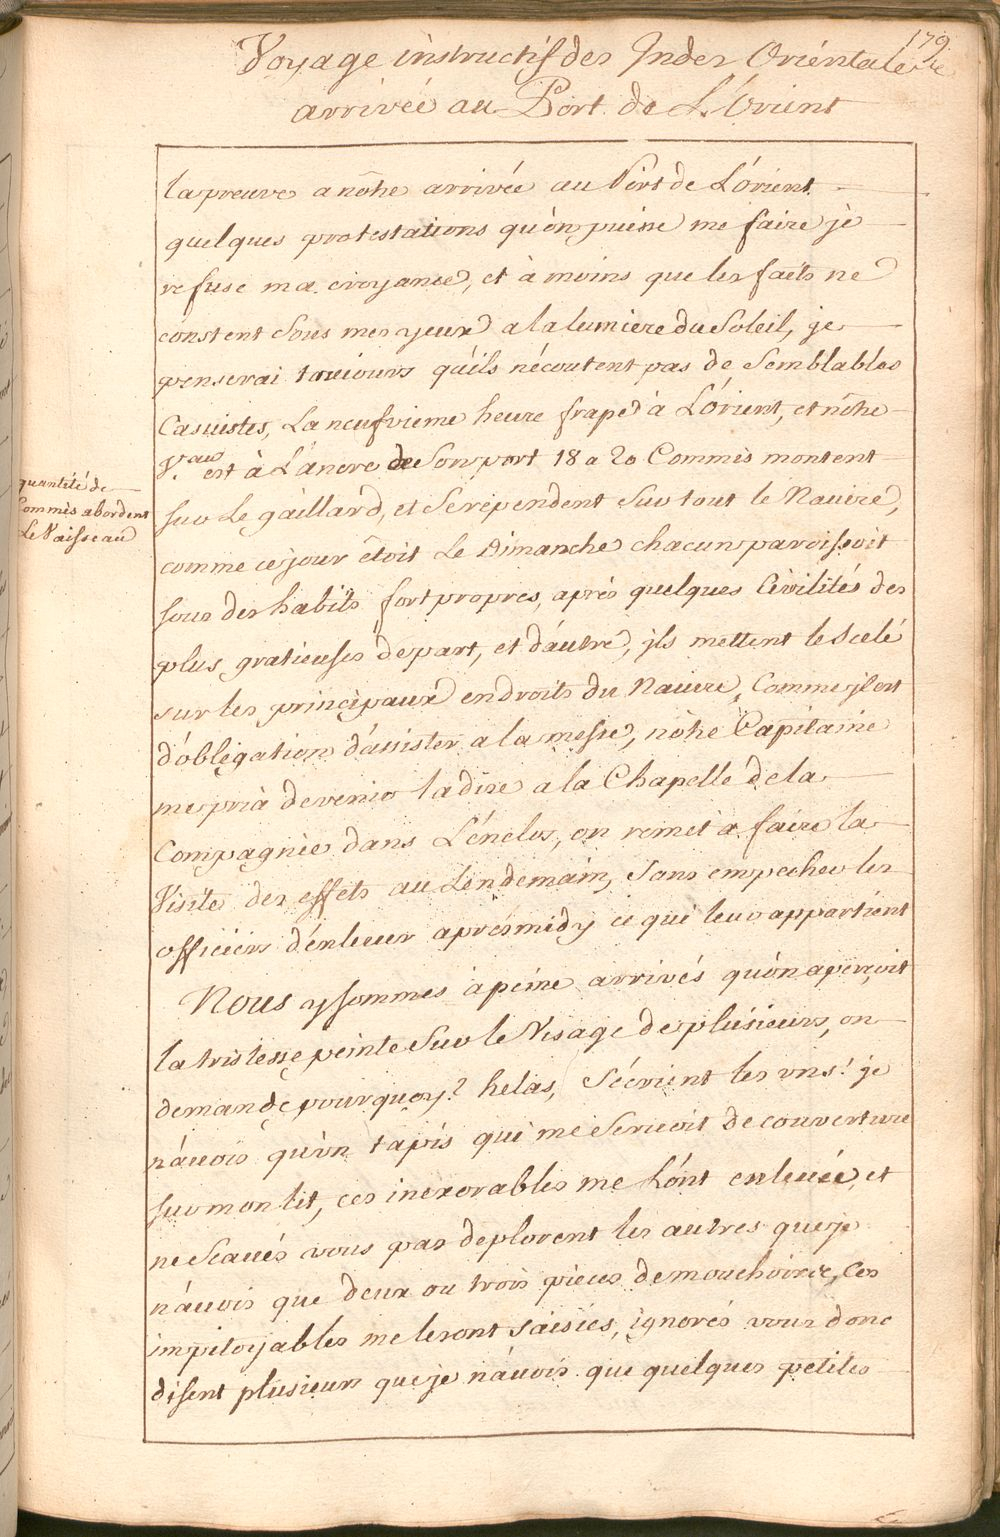 179
Voyage instructif des Indes Orientales
arrivée au Port de L'Orient
la preuve a nôtre arrivée au Port de L'órient
quelques protestations qu'on puisse me faire je
refuse ma croyance, et à moins que les faits ne
constent Sous mes yeux a la lumiere du Soleil, je
penserai toujours qu'ils nécoutent pas de Semblables
Casuistes, La neufvieme heure frape à L'órient, et nôtre
V.au est à L'áncre de Son port 18 a 20 Commis montent
Sur Le gaillard, et Se répendent Sur tout le Navire,
comme ce jour étoit Le Dimanche chacun paroissoit
sous des habits fort propres, aprés quelques Civilités des
plus gratieuses de part, et d'áutre, jls mettent le Scelé
sur les principaux endroits du Navire, Comme jl est
d'obligation d'assister a la messe, nôtre Capitaine
me pria de venir la dire a la Chapelle de la
Compagnie dans L'énclos, on remet a faire la
Visite des effets au Lendemain, Sans empecher les
officiers d'énlever aprésmidy ce qui leur appartient
Nous y sommes à peine arrivés qu'on aperçoit
la tristesse peinte Sur le Visage de plusieurs, on
demande pourquoy? helas, S'écrient les vns! je
n'áuois qu'ún tapis qui me Seruoit de couverture
sur mon lit, ces inexorables me L'ónt enleuée, et
ne Scaués vous pas deplorent les autres que je
n'áuois que deux ou trois pieces de mouchoirie, Ces
impitoyables me les ont saisies, ignorés vous donc
disent plusieurs que je n'áuois que quelques petites
quantité de
Commis abordent
Le Vaisseau